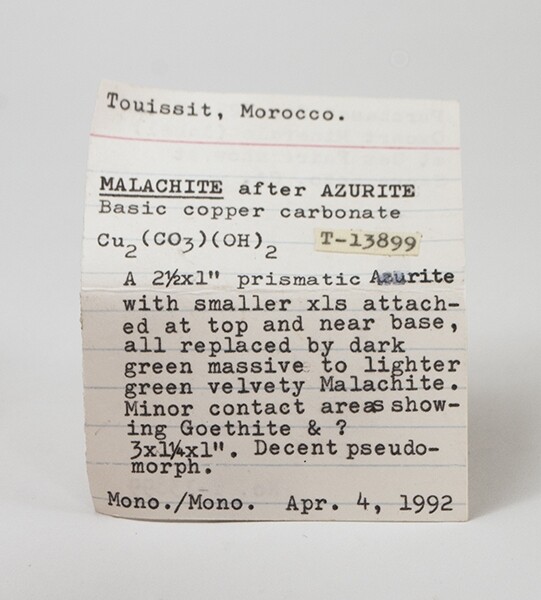 Touissit, Morocco.
MALACHITE after AZURITE
Basic copper carbonate
Cu2(CO3)(OH)2 T-13899
A 2½x1" prismatic Azurite
with smaller xls attach-
ed at top and near base,
all replaced by dark
green massive to lighter
green velvety Malachite.
Minor contact areas show-
ing Goethite & ?
3x1¼x1". Decent pseudo-
morph.
Mono./Mono. Apr. 4, 1992